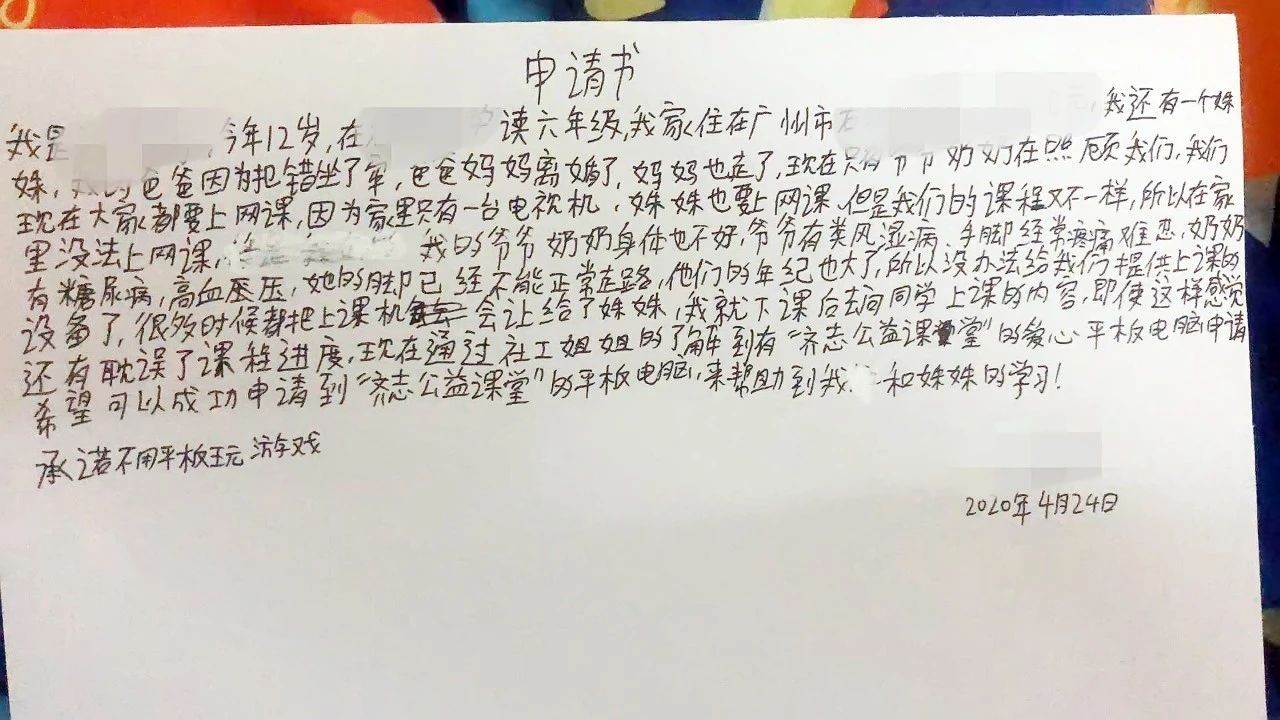 申请书
我是 ,今年12岁,在 读六年级,我家住在广州市 ,我还有一个妹
妹, 爸爸因为把错坐了牢,爸爸妈妈离婚了,妈妈也走了,现在只有爷爷奶奶在照顾我们,我们
现在大家都要上网课,因为家里只有一台电视机,妹妹也要上网课,但是我们的课程又不一样,所以在家
里没法上网课, 我的爷爷奶奶身体也不好,爷爷有类风湿病、手脚经常疼痛难忍,奶奶
有糖尿病,高血压,她的脚已经不能正常走路,他们的年纪也大了,所以没办法给我们提供上课的
设备了,很多时候都把上课机会让给了妹妹,我就下课后去问同学上课的内容,即使这样感觉
还有耽误了课程进度,现在通过社工姐姐的了解到有“齐志公益课堂”的爱心平板电脑申请
希望可以成功申请到“齐志公益课堂”的平板电脑,来帮助到我 和妹妹的学习!
承诺不用平板玩游戏
2020年4月24日